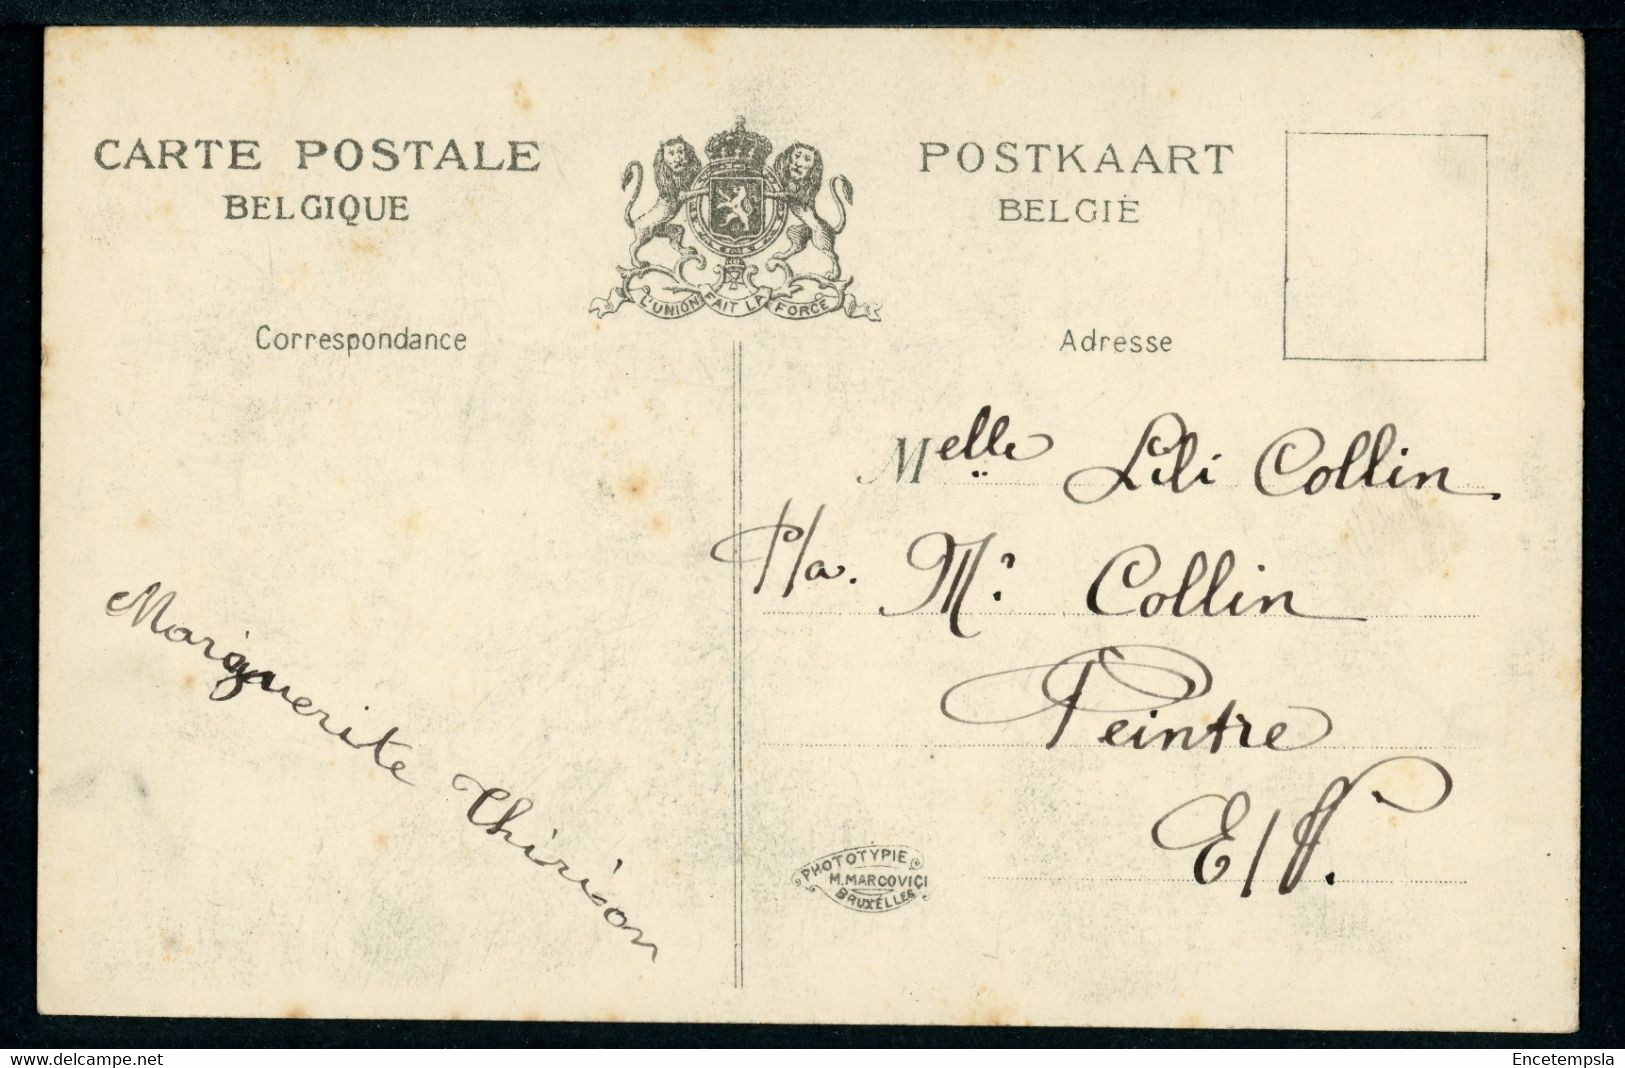 CARTE POSTALE
BELGIQUE
POSTKAART
BELGIË
L'UNION FAIT LA FORCE
Correspondance
Adresse
Melle Lili Collin
P/a. Mr Collin
Peintre
E/V.
Marguerite Thirion
PHOTOTYPIE
M. MARCOVICI
BRUXELLES
www.delcampe.net
Encetempsla